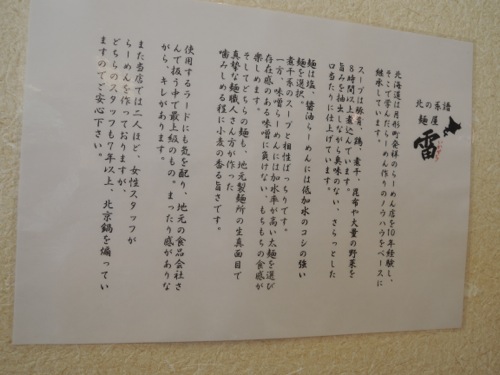 北の系譜
麺屋
雷
北海道は月形町発祥のらーめん店を10年経験し、
そこで学んだらーめん作りのノウハウをベースに
継承しています。
スープは豚骨、鶏、煮干、昆布や大量の野菜を
8時間以上煮込んでいます。
旨みを抽出しながら臭味のない、さらっとした
口当たりに仕上げています。
麺は塩、醤油らーめんには低加水のコシの強い
麺を選択。
煮干系のスープと相性ばっちりです。
一方、味噌らーめんには加水率が高い太麺を選び
存在感のある味噌に負けない、もちもちの食感が
楽しめます。
そしてどちらの麺も、地元製麺所の生真面目で
真摯な麺職人さん方が作った
噛みしめる程に小麦の香る旨さです。
使用するラードにも気を配り、地元の食品会社さ
んで扱う中で最上級のもの。まったり感がありな
がら、キレがあります。
また当店では二人ほど、女性スタッフが
らーめんを作っておりますが、
どちらのスタッフも7年以上、北京鍋を煽ってい
ますのでご安心下さい。